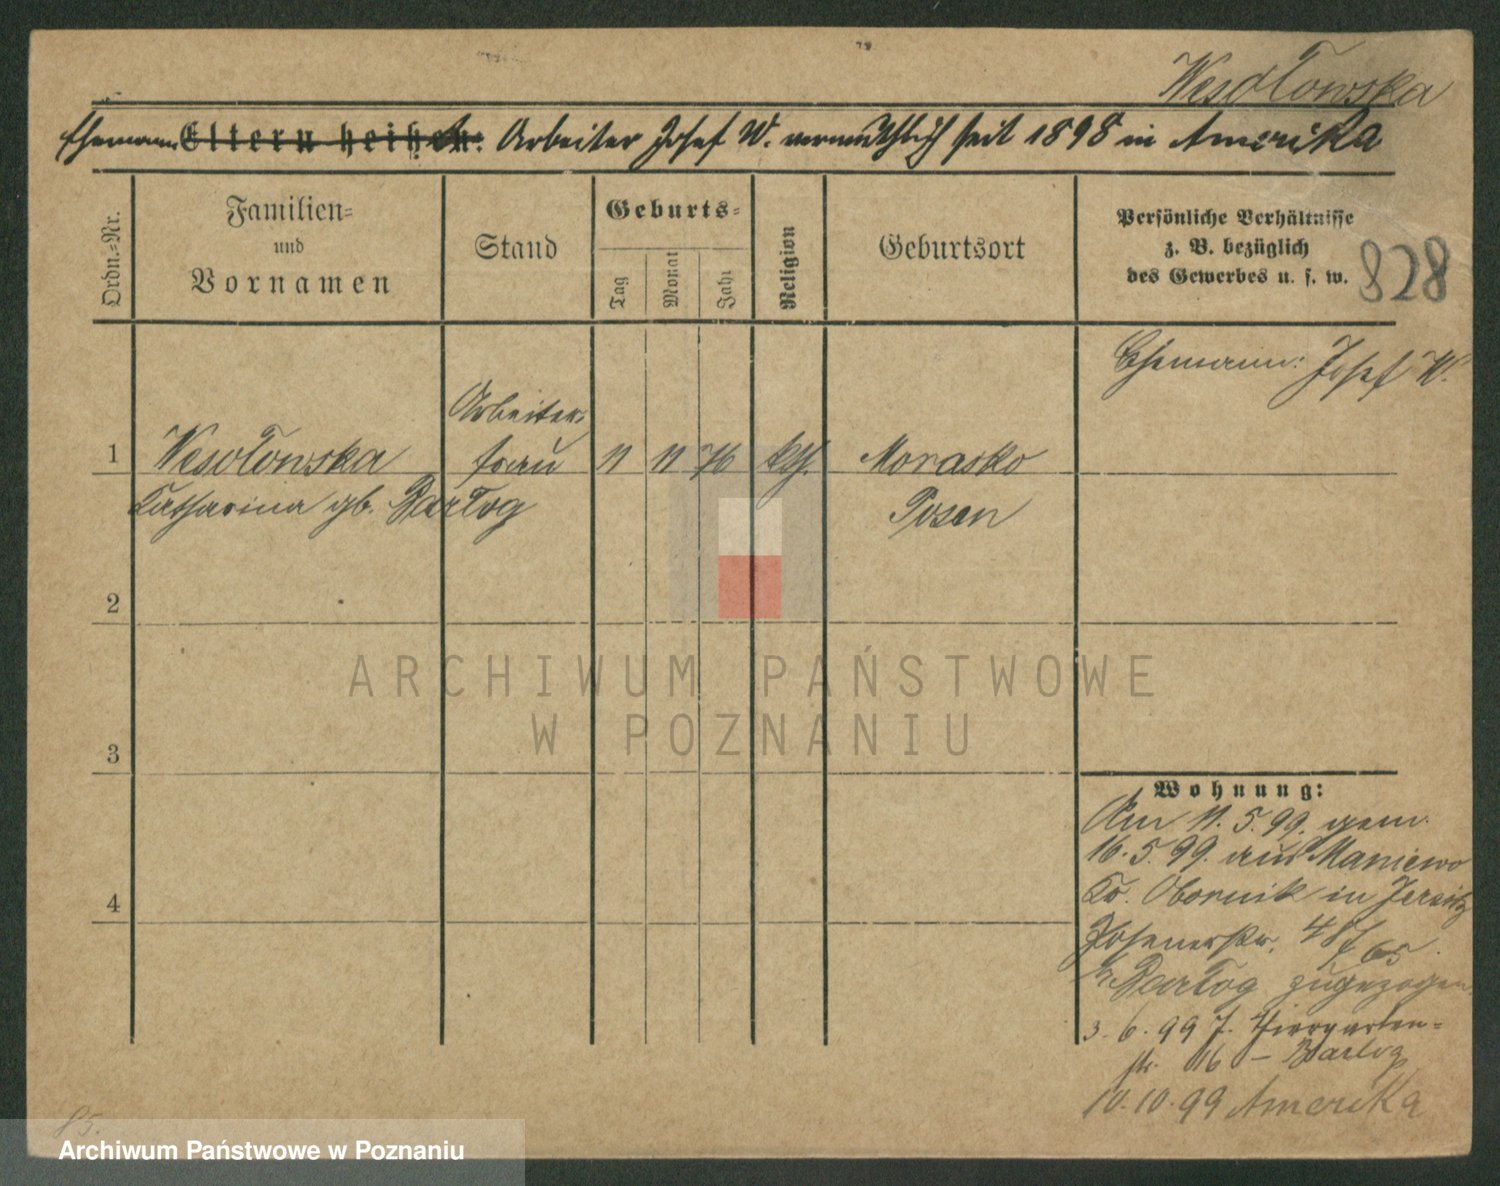 Wesołowska
Ehemann Eltern heißen: Arbeiter Josef W. vermuthlich seit 1898 in Amerika
Ordn.=Nr.
Familien=
und
Vornamen
Stand
Geburts=
Tag
Monat
Jahr
Religion
Geburtsort
Persönliche Verhältnisse
z. B. bezüglich
des Gewerbes u. s. w.
828
Ehemann: Josef W.
1
Wesołowska
Katharina gb. Bartog
Arbeiter=
frau
11
11
76
kth.
Morasko
Posen
2
3
4
Wohnung:
Am 11.5.99. gem.
16.5.99. aus Maniewo
Kr. Obornik in Jersitz
Posenerstr. 48/65
b/ Bartog zugezogen
3.6.99 J. Thiergarten=
str. 16 – Bartog
10.10.99 Amerika
85.
ARCHIWUM PAŃSTWOWE
W POZNANIU
Archiwum Państwowe w Poznaniu